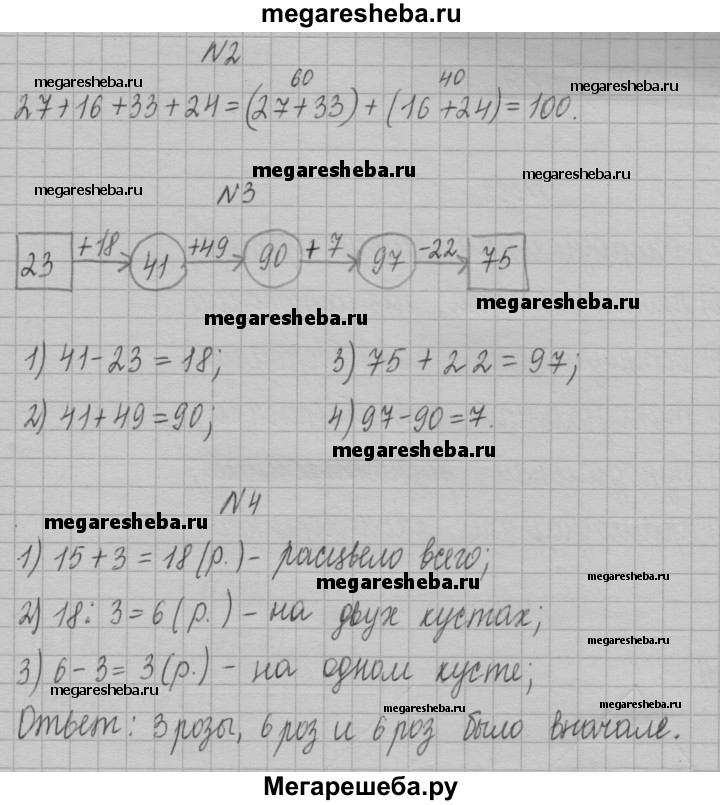 megaresheba.ru
N2
megaresheba.ru
60 40
megaresheba.ru
27+16+33+24=(27+33)+(16+24)=100.
megaresheba.ru
megaresheba.ru
megaresheba.ru
N3
23 +18 41 +49 90 +7 97 -22 75
megaresheba.ru
megaresheba.ru
1) 41-23=18; 3) 75+22=97;
2) 41+49=90; 4) 97-90=7.
megaresheba.ru
N4
megaresheba.ru
1) 15+3=18(р.)- расцвело всего;
megaresheba.ru
megaresheba.ru
2) 18:3=6(р.)- на двух кустах;
megaresheba.ru
3) 6-3=3(р.)- на одном кусте;
megaresheba.ru
megaresheba.ru
megaresheba.ru
Ответ: 3 розы, 6 роз и 6 роз было вначале.
Мегарешеба.ру